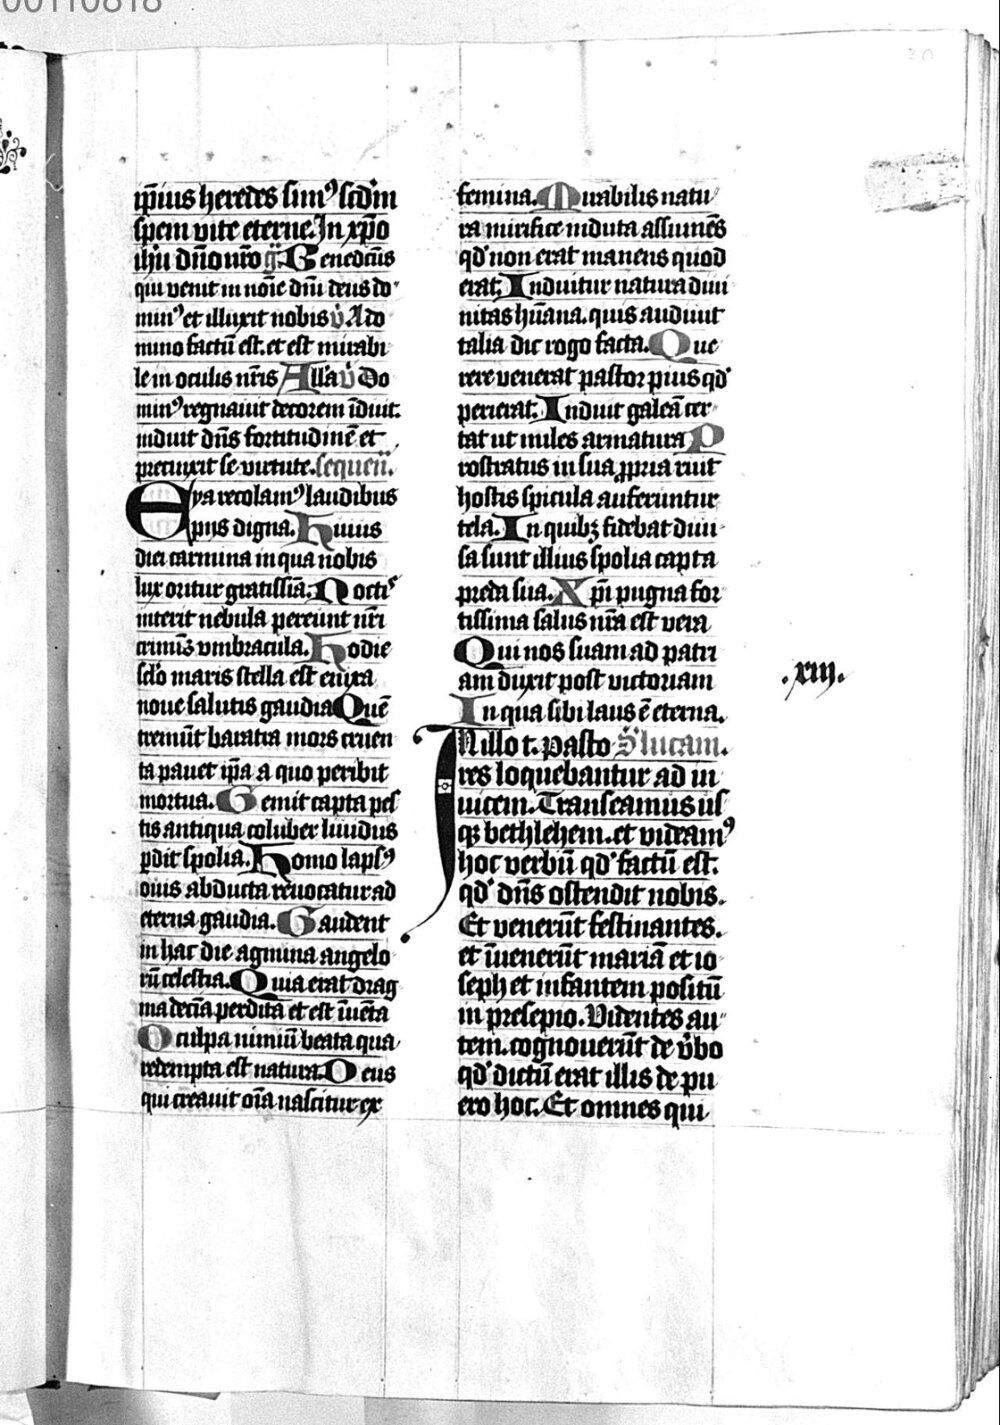 00110818
20
ip̄ius heredes sim⁹ scd̄m
spem vite eterne. In xp̄o
ihū dn̄o nr̄o gͣ Benedictꝰ
qui venit in noīe dn̄i deus do
min⁹ et illuxit nobis v̓ A do
mino factū est. et est mirabi
le in oculis nr̄is Alla v̓ Do
min⁹ regnavit decorem īduit
induit dn̄s fortitudinē et
precinxit se virtute. sequen̄.
Eya recolam⁹ laudibus
pijs digna. Huius
diei carmina in qua nobis
lux oritur gratissīa. Nocti
interit nebula pereunt nr̄i
criminis vmbracula. Hodie
sclo maris stella est enixa
noue salutis gaudia Quē
tremūt baratra mors cruen
ta pauet ip̄a a quo peribit
mortua. Gemit capta pes
tis antiqua coluber liuidus
ꝑdit spolia. Homo laps⁹
ouis abducta reuocatur ad
eterna gaudia. Gaudent
in hac die agmina angelo
rū celestia. Quia erat drag
ma decīa perdita et est īuēta
O culpa nimiū beata qua
redempta est natura. Deus
qui creauit oīa nascitur ex
femina. Mirabilis natu
ra mirifice induta assumēs
qd̓ non erat manens quod
erat. Induitur natura diui
nitas hūana. quis audiuit
talia dic rogo facta. Que
rere venerat pastor pius qd̓
perierat. Induit galeā cer
tat ut miles armatura P
rostratus in sua ꝓpria ruit
hostis spicula auferuntur
tela. In quibꝫ fidebat diui
sa sunt illius spolia capta
preda sua. Xp̄i pugna for
tissima salus nr̄a est vera
Qui nos suam ad patri
am duxit post victoriam
In qua sibi laus ē eterna.
IN illo t. pasto S̓ lucam.
res loquebantur ad in
uicem. Transeamus us
qꝫ bethlehem. et videam⁹
hoc verbū qd̓ factū est.
qd̓ dn̄s ostendit nobis.
Et venerūt festinantes.
et īuenerūt mariā et io
seph et infantem positū
in presepio. Videntes au
tem. cognouerūt de v̓bo
qd̓ dictū erat illis de pu
ero hoc. Et omnes qui
.xiij.